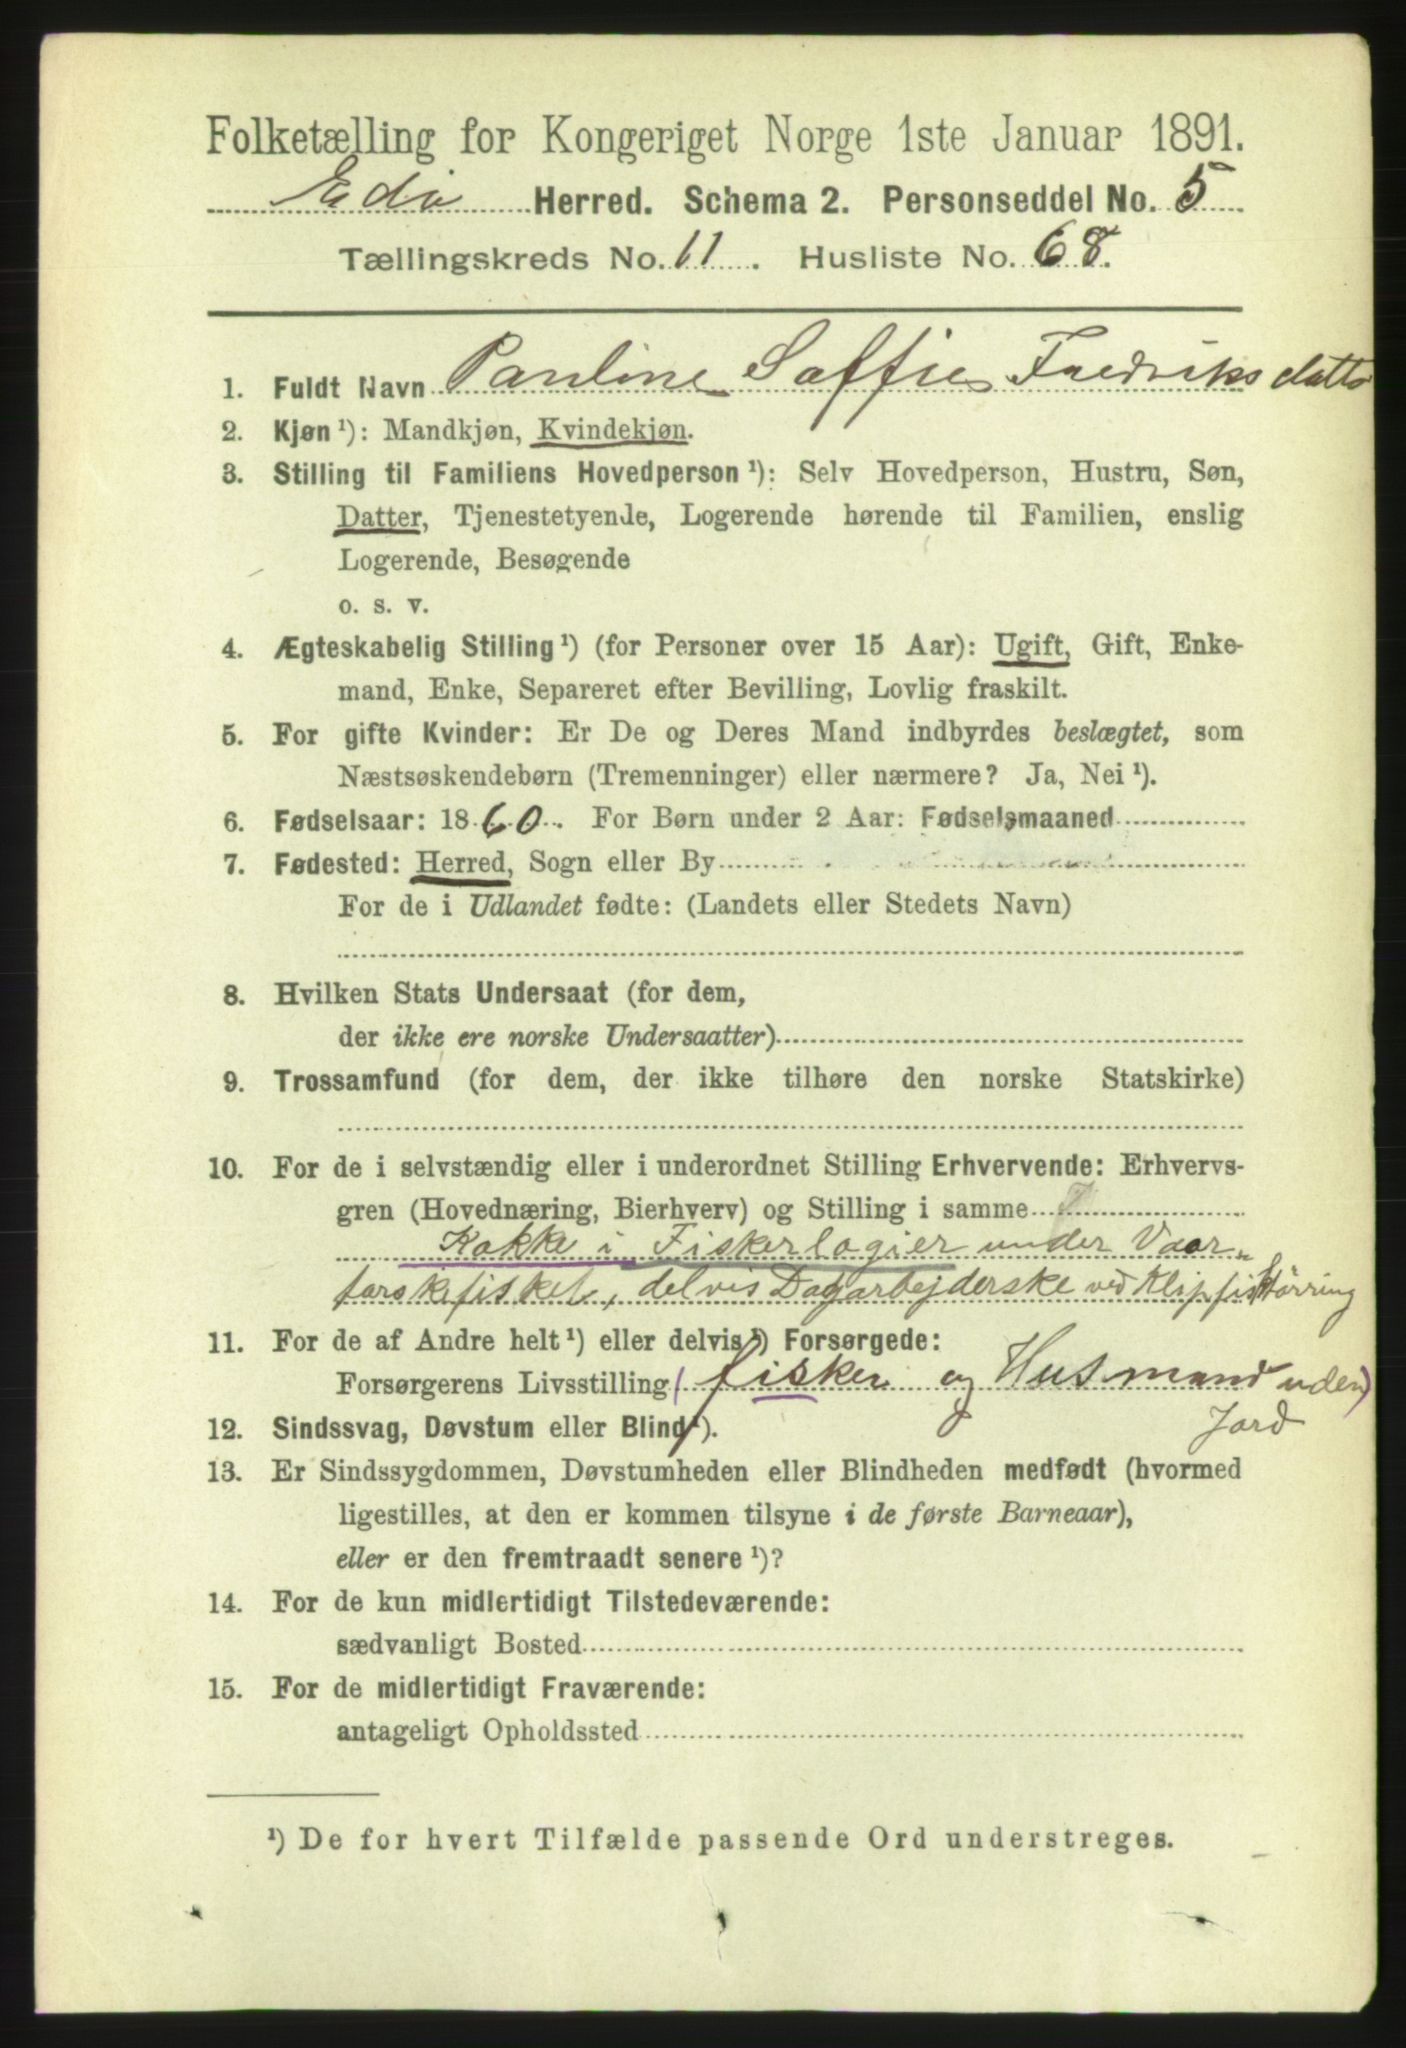 Folketælling for Kongeriget Norge 1ste Januar 1891.
Edø Herred. Schema 2. Personseddel No. 5
Tællingskreds No. 11. Husliste No. 68.
1. Fuldt Navn Pauline Saffie Fredriksdatte
2. Kjøn ¹): Mandkjøn, Kvindekjøn.
3. Stilling til Familiens Hovedperson ¹): Selv Hovedperson, Hustru, Søn,
Datter, Tjenestetyende, Logerende hørende til Familien, enslig
Logerende, Besøgende
o. s. v.
4. Ægteskabelig Stilling ¹) (for Personer over 15 Aar): Ugift, Gift, Enke-
mand, Enke, Separeret efter Bevilling, Lovlig fraskilt.
5. For gifte Kvinder: Er De og Deres Mand indbyrdes beslægtet, som
Næstsøskendebørn (Tremenninger) eller nærmere? Ja, Nei ¹).
6. Fødselsaar: 1860. For Børn under 2 Aar: Fødselsmaaned
7. Fødested: Herred, Sogn eller By
For de i Udlandet fødte: (Landets eller Stedets Navn)
8. Hvilken Stats Undersaat (for dem,
der ikke ere norske Undersaatter)
9. Trossamfund (for dem, der ikke tilhøre den norske Statskirke)
10. For de i selvstændig eller i underordnet Stilling Erhvervende: Erhvervs-
gren (Hovednæring, Bierhverv) og Stilling i samme
Kokke i Fiskerlogier under Vaar-
torskefisket, delvis Dagarbejderske ved Klipfisktörring
11. For de af Andre helt ¹) eller delvis ¹) Forsørgede:
Forsørgerens Livsstilling (fisker og Husmand uden)
Jord
12. Sindssvag, Døvstum eller Blind ¹).
13. Er Sindssygdommen, Døvstumheden eller Blindheden medfødt (hvormed
ligestilles, at den er kommen tilsyne i de første Barneaar),
eller er den fremtraadt senere ¹)?
14. For de kun midlertidigt Tilstedeværende:
sædvanligt Bosted
15. For de midlertidigt Fraværende:
antageligt Opholdssted
¹) De for hvert Tilfælde passende Ord understreges.